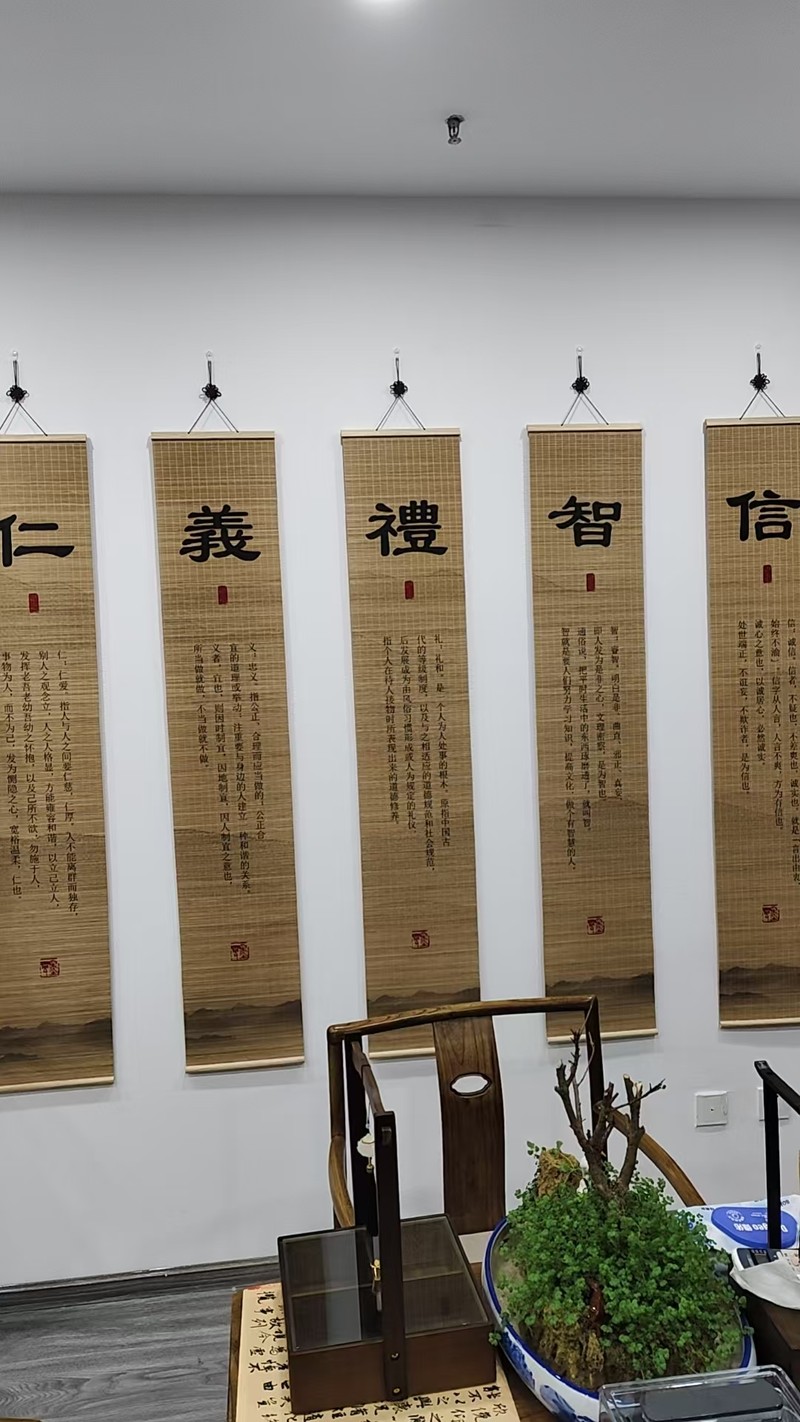 仁
仁，仁爱，指人与人之间要仁慈，仁厚，人不能离群而独存，
别人之观念立，人之人格显，方能雍容和谐，以立己立人，
发挥老吾老幼吾幼之怀抱，以及己所不欲，勿施于人，
事物为人，而不为己，发为恻隐之心，宽裕温柔，仁也。
義
义，忠义，指公正、合理而应当做的，公正合
宜的道理或举动，注重要与身边的人建立一种和谐的关系，
义者，宜也，则因时制宜，因地制宜，因人制宜之意也，
所当做就做，不当做就不做。
禮
礼，礼和，是一个人为人处事的根本，原指中国古
代的等级制度，以及与之相适应的道德规范和社会规范，
后发展成为由风俗习惯形成或人为规定的礼仪，
指个人在待人接物时所表现出来的道德修养。
智
智，睿智，明白是非、曲直、邪正、真妄，
即人发为是非之心，文理密察，是为智也，
通俗说，把平时生活中的东西琢磨透了，就叫智，
智就是要人们努力学习知识，提高文化，做个有智慧的人。
信
信，诚信，信者，不疑也，不差爽也，诚实也，就是
始终不渝，信字从人言，人言不爽，方为有信也，
诚心之意也，以诚居心，必然诚实，
处世端正，不诳妄，不欺诈者，是为信也。